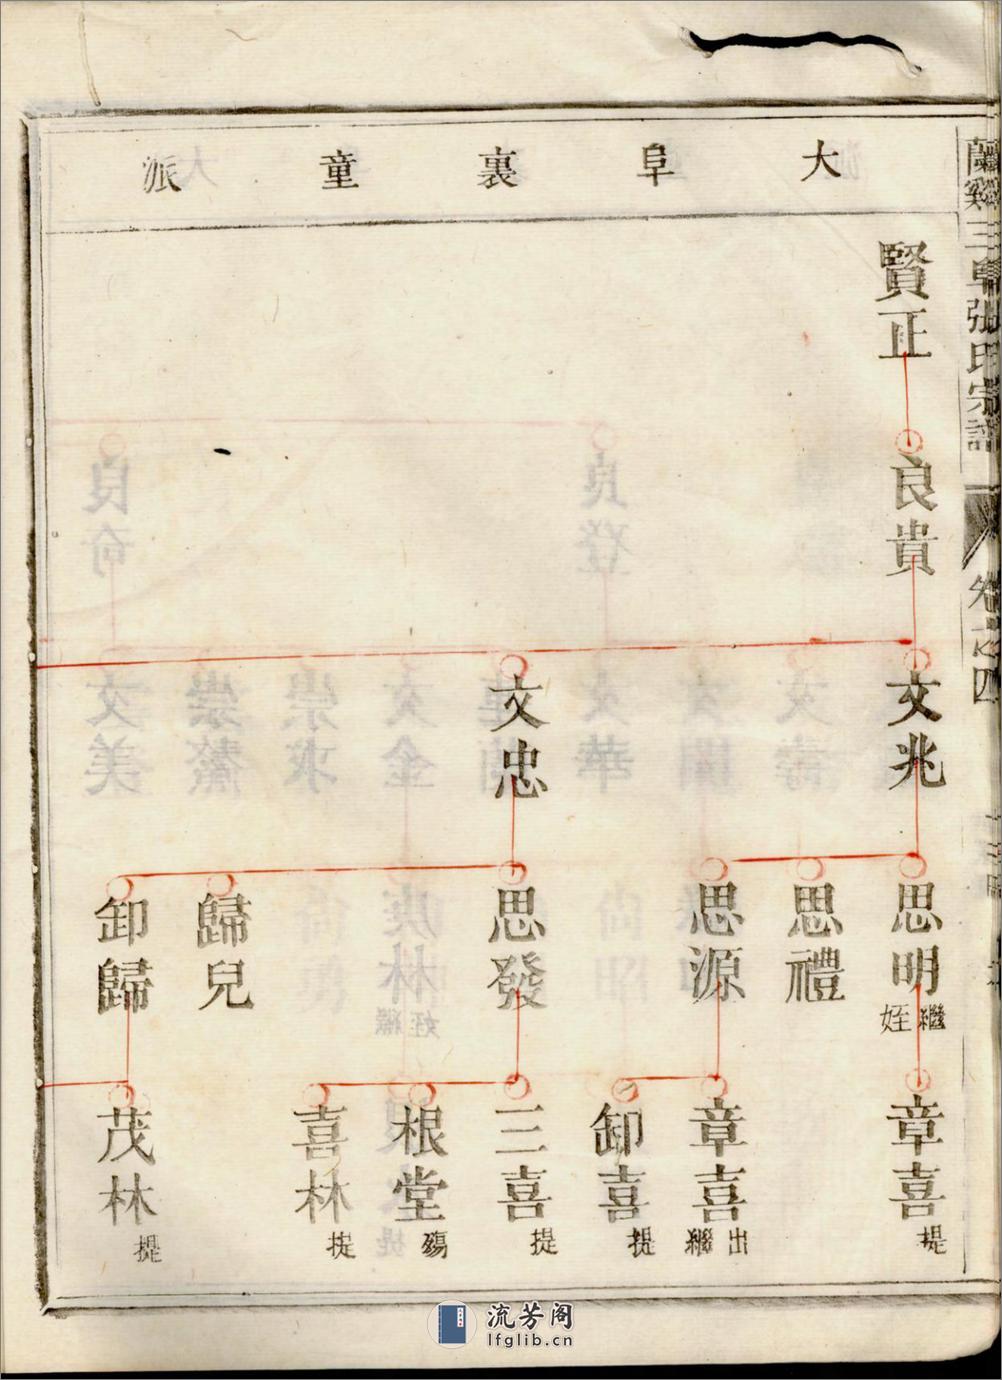 大阜裏童派
賢正
良貴
文兆
文忠
思明 繼姪
思禮
思源
思發
歸兒
卸歸
章喜 提
章喜 出繼
卸喜 提
三喜 提
根堂 殤
喜林 提
茂林 提
張氏宗譜
流芳阁
lfglib.cn